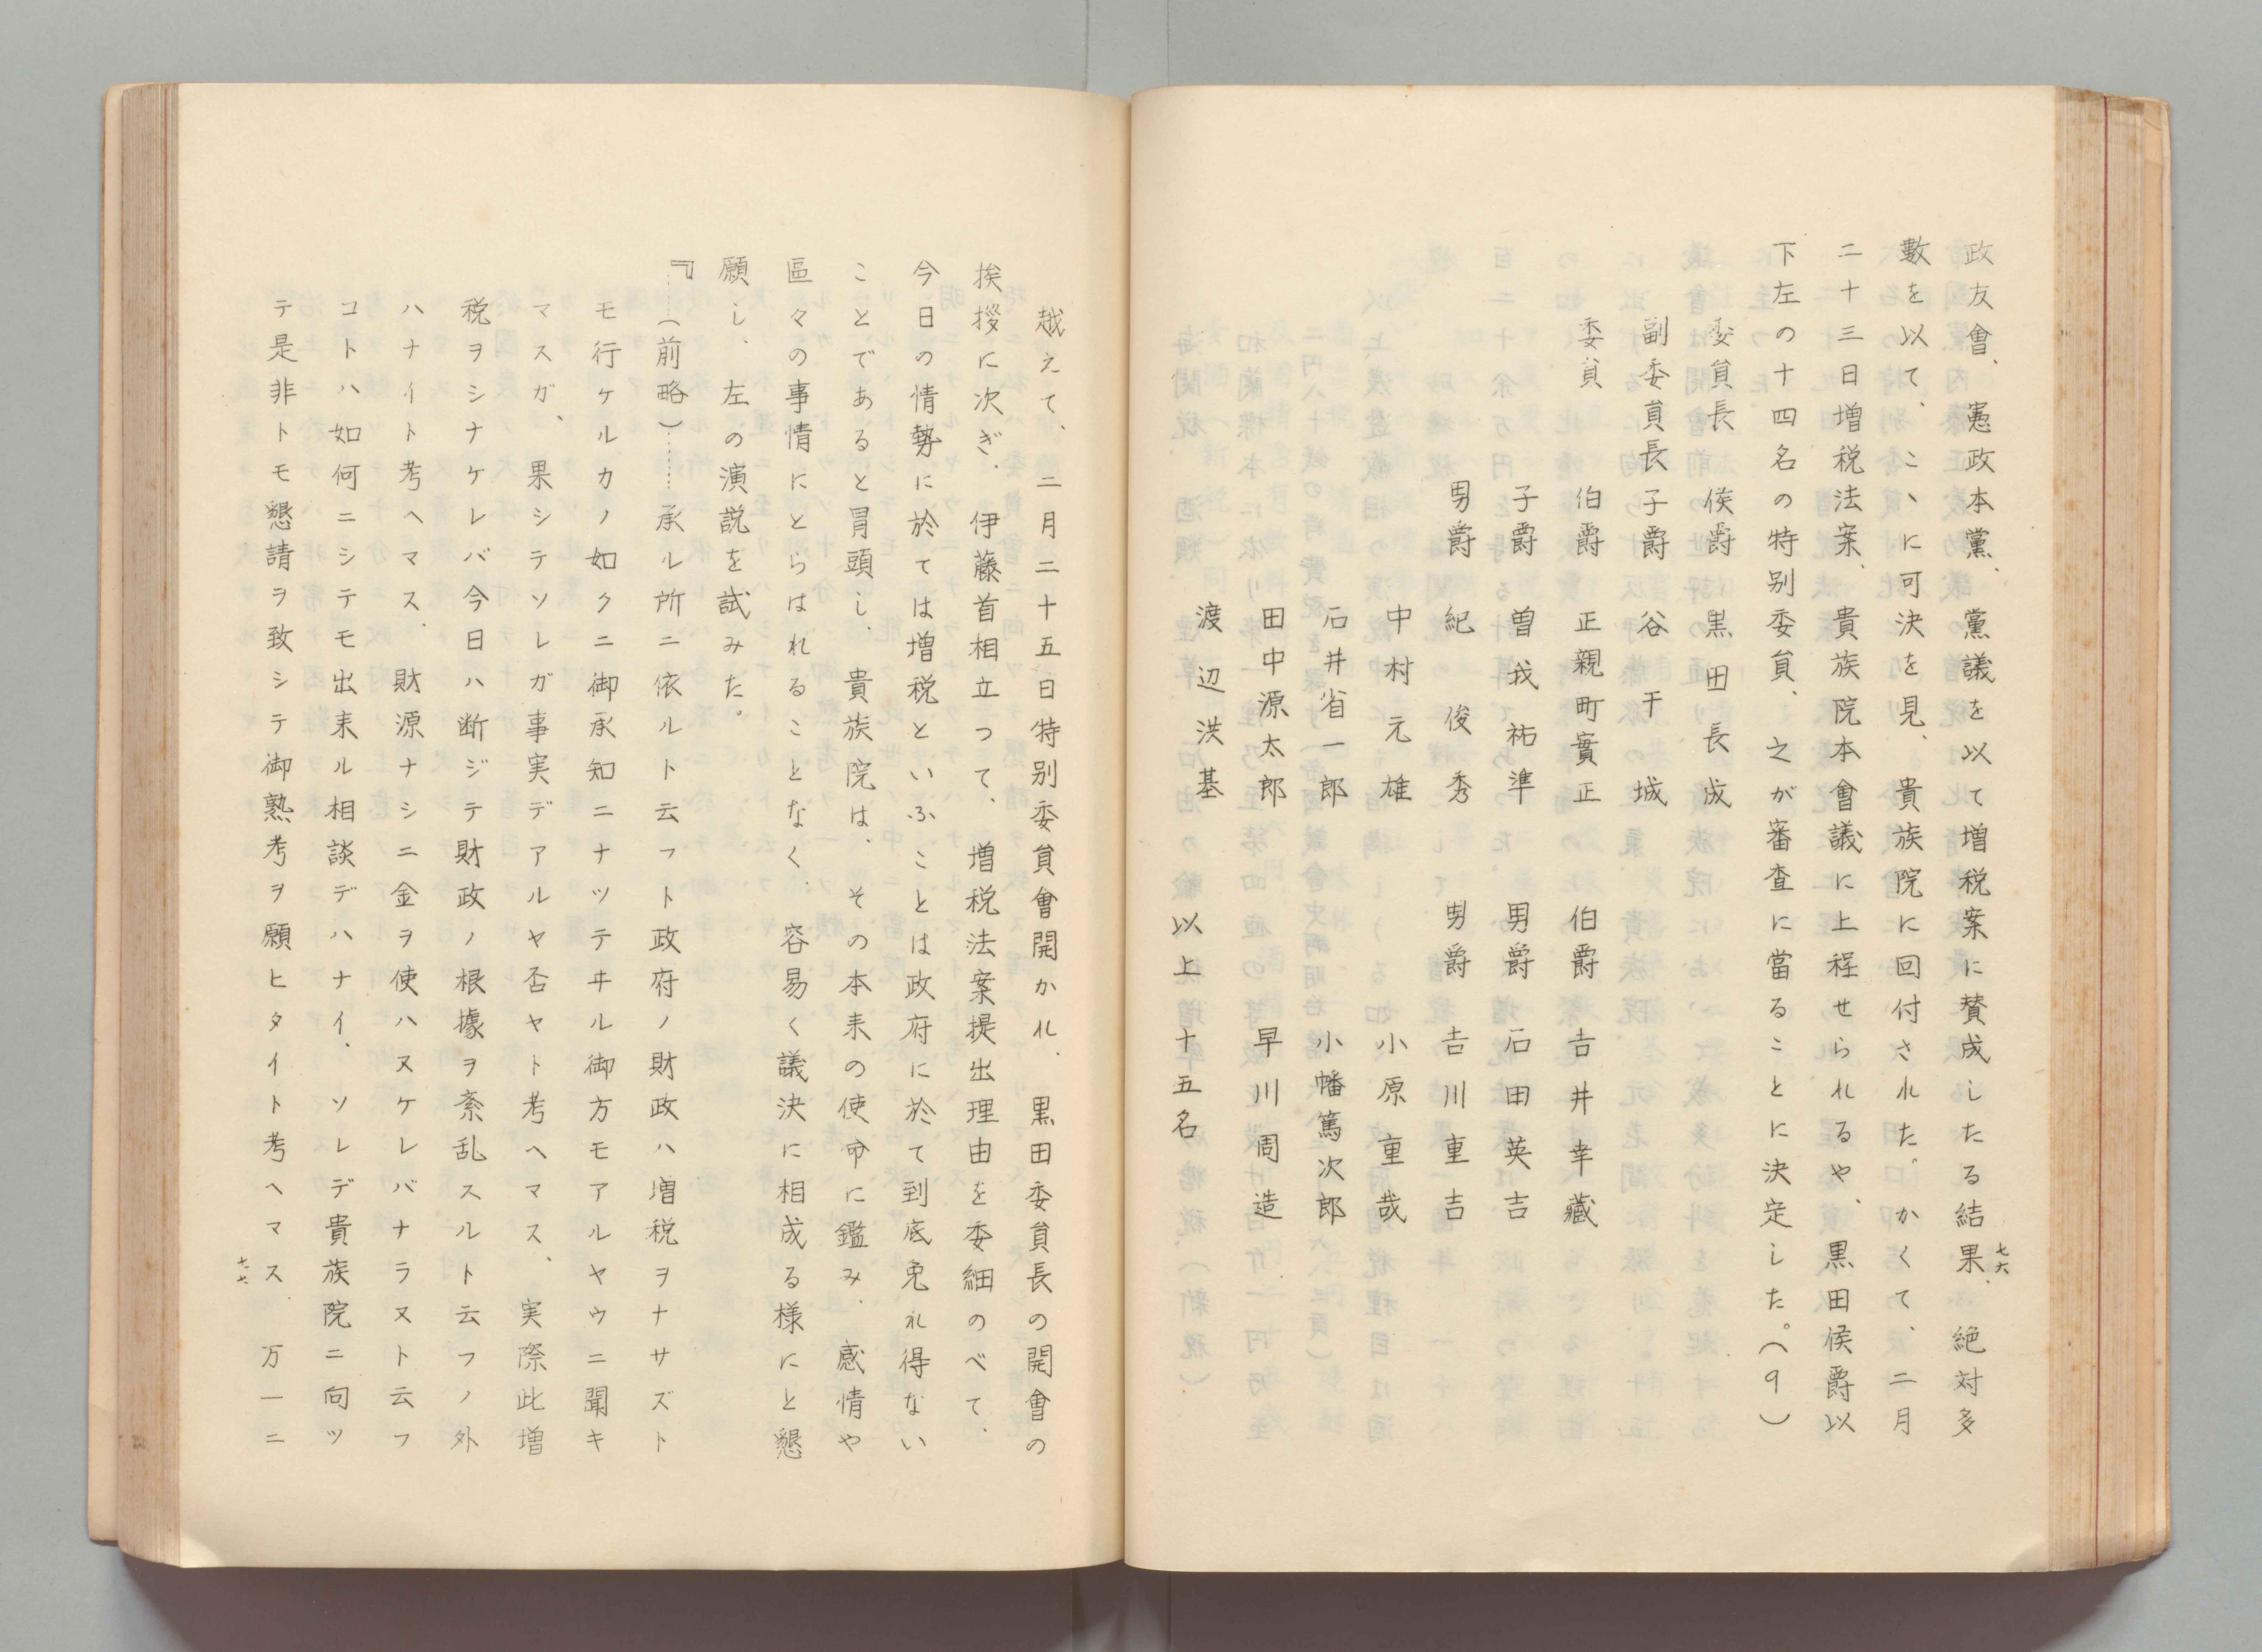 政友會、憲政本黨、黨議を以て増税案に賛成したる結果、絶対多
數を以て、こゝに可決を見、貴族院に回付された。かくて、二月
二十三日増税法案、貴族院本會議に上程せられるや、黒田侯爵以
下左の十四名の特別委員、之が審査に當ることに決定した。（9）
委員長　侯爵　黒田長成
副委員長　子爵　谷干城
委員　伯爵　正親町實正　伯爵　吉井幸藏
子爵　曽我祐準　男爵　石田英吉
男爵　紀俊秀　男爵　吉川重吉
中村元雄　小原重哉
石井省一郎　小幡篤次郎
田中源太郎　早川周造
渡辺洪基　以上十五名
七六
越えて、二月二十五日特別委員會開かれ、黒田委員長の開會の
挨拶に次ぎ、伊藤首相立って、増税法案提出理由を委細のべて、
今日の情勢に於ては増税といふことは政府に於て到底免れ得ない
ことであると冒頭し、貴族院は、その本来の使命に鑑み、感情や
區々の事情にとらはれることなく、容易く議決に相成る様にと懇
願し、左の演説を試みた。
『……（前略）……承ル所ニ依ルト云フト政府ノ財政ハ増税ヲナサズト
モ行ケルカノ如クニ御承知ニナツテヰル御方モアルヤウニ聞キ
マスガ、果シテソレガ事実デアルヤ否ヤト考ヘマス、実際此増
税ヲシナケレバ今日ハ断ジテ財政ノ根據ヲ紊乱スルト云フノ外
ハナイト考ヘマス、財源ナシニ金ヲ使ハヌケレバナラヌト云フ
コトハ如何ニシテモ出来ル相談デハナイ、ソレデ貴族院ニ向ツ
テ是非トモ懇請ヲ致シテ御熟考ヲ願ヒタイト考ヘマス、万一ニ
七七